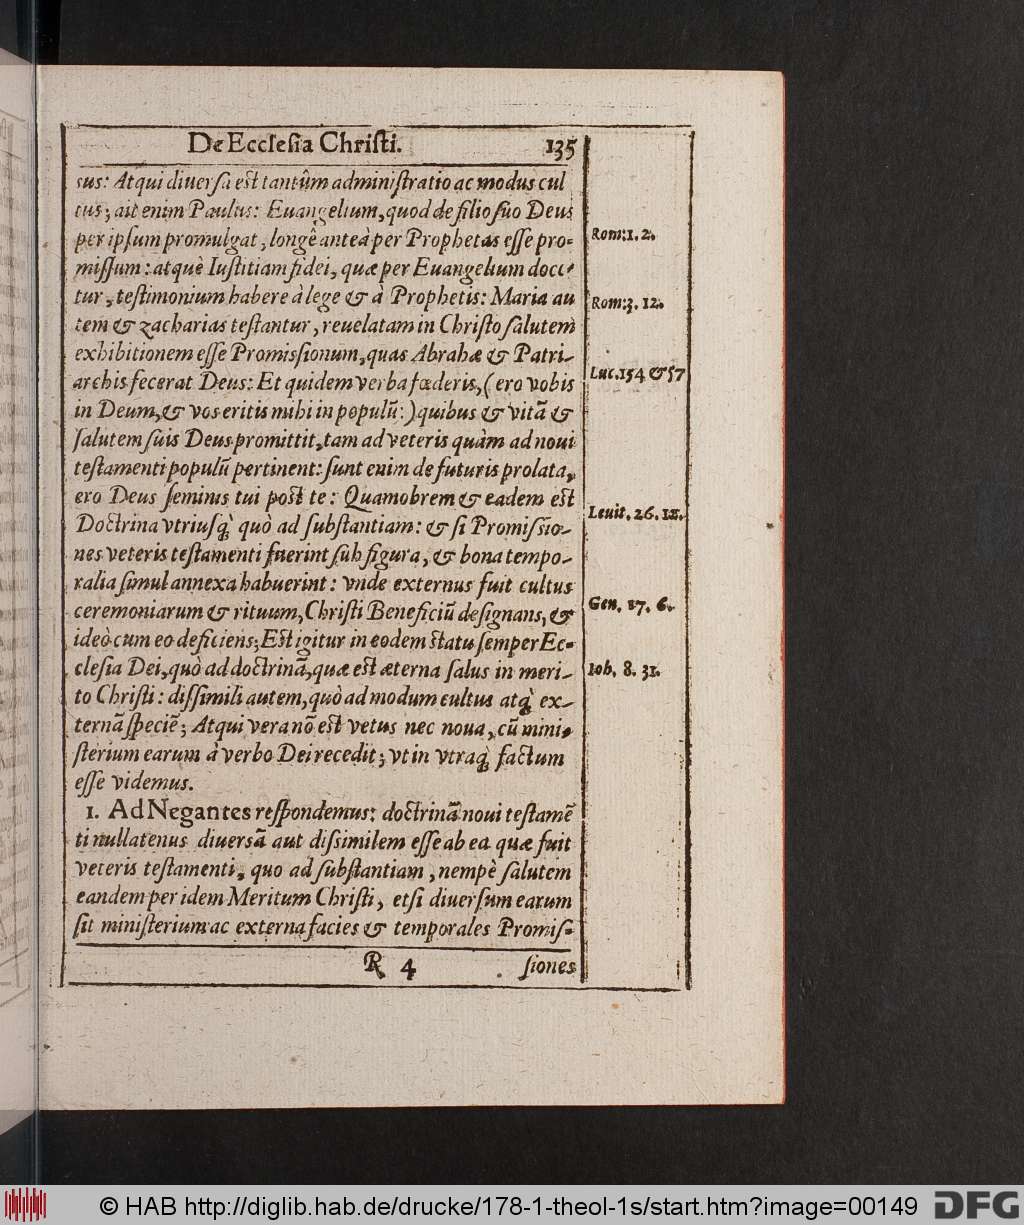 De Ecclesia Christi. 135
sus: Atqui diuersa est tantûm administratio ac modus cul
tus; ait enim Paulus: Euangelium, quod de filio suo Deus
per ipsum promulgat, longê anteà per Prophetas esse pro-
missum: atquè Iustitiam fidei, quæ per Euangelium docc-
tur, testimonium habere à lege & à Prophetis: Maria au
tem & zacharias testantur, reuelatam in Christo salutem
exhibitionem esse Promissionum, quas Abrahæ & Patri-
archis fecerat Deus: Et quidem verba fœderis, (ero vobis
in Deum, & vos eritis mihi in populũ:) quibus & vitã &
salutem suis Deus promittit, tam ad veteris quàm ad noui
testamenti populũ pertinent: sunt enim de futuris prolata,
ero Deus seminis tui post te: Quamobrem & eadem est
Doctrina vtriusq̀ quò ad substantiam: & si Promissio-
nes veteris testamenti fuerint sub figura, & bona tempo-
ralia simul annexa habuerint: vnde externus fuit cultus
ceremoniarum & rituum, Christi Beneficiũ designans, &
ideò cum eo deficiens; Est igitur in eodem statu semper Ec-
clesia Dei, quò ad doctrinã, quæ est æterna salus in meri-
to Christi: dissimili autem, quò ad modum cultus atq̀ ex-
ternã speciẽ; Atqui vera nõ est vetus nec noua, cũ mini-
sterium earum à verbo Dei recedit; vt in vtraq̀ factum
esse videmus.
1. Ad Negantes respondemus: doctrinã noui testamẽ
ti nullatenus diuersã aut dissimilem esse ab ea quæ fuit
veteris testamenti, quo ad substantiam, nempè salutem
eandem per idem Meritum Christi, etsi diuersum earum
sit ministerium ac externa facies & temporales Promis-
R 4 siones
Rom: 1. 2.
Rom: 3. 12.
Luc. 1 54 & 57
Leuit. 26. 12.
Gen. 17. 6.
Ioh. 8. 31.
© HAB http://diglib.hab.de/drucke/178-1-theol-1s/start.htm?image=00149 DFG